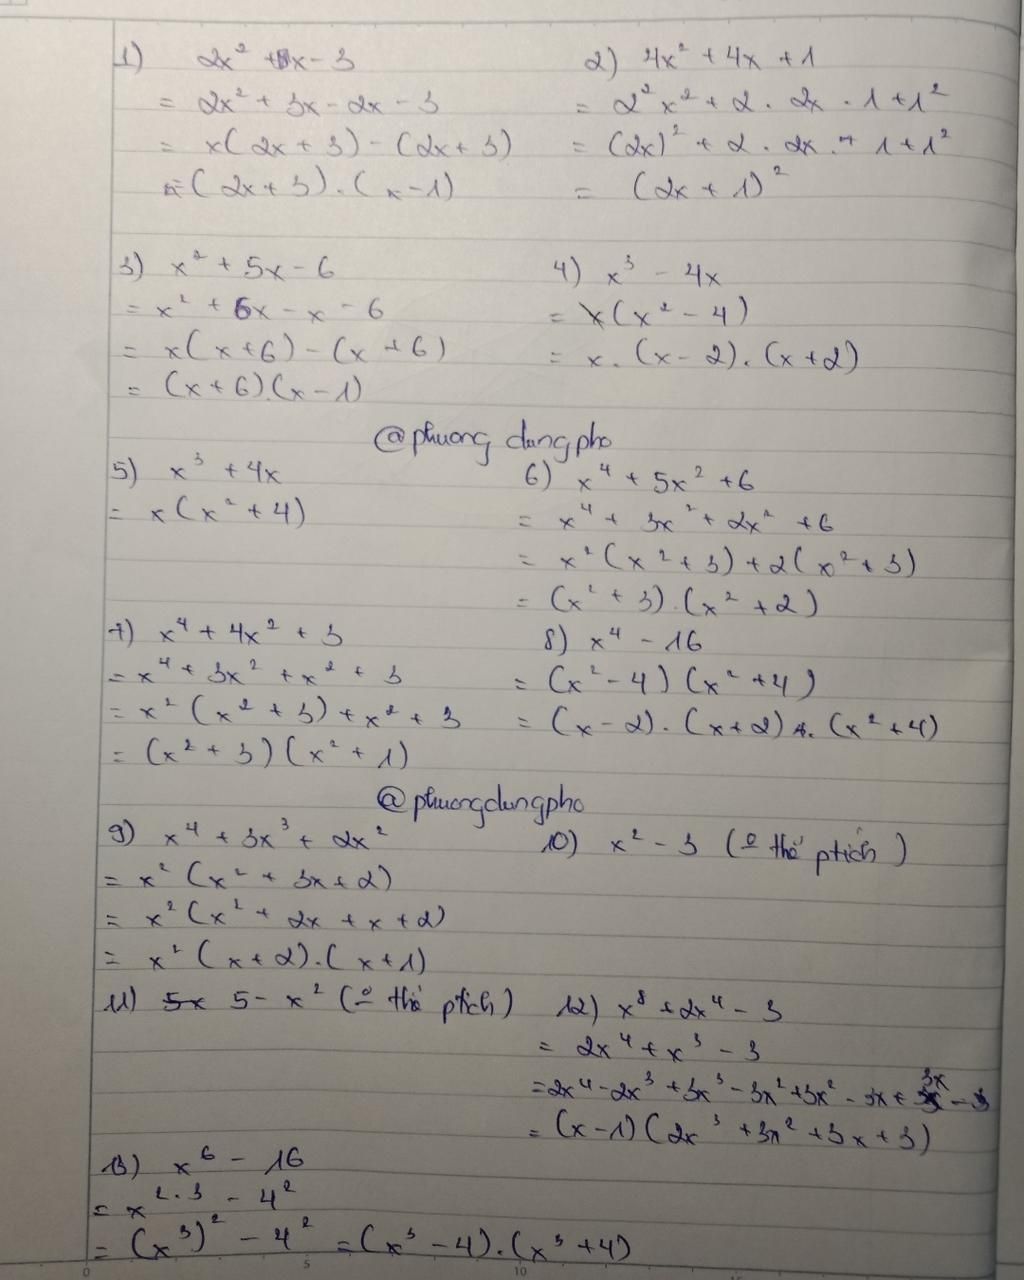 1) 2x² + x - 3
= 2x² + 3x - 2x - 3
= x(2x + 3) - (2x + 3)
= (2x + 3).(x - 1)
2) 4x² + 4x + 1
= 2²x² + 2 . 2x . 1 + 1²
= (2x)² + 2 . 2x . 1 + 1²
= (2x + 1)²
3) x² + 5x - 6
= x² + 6x - x - 6
= x(x + 6) - (x + 6)
= (x + 6).(x - 1)
4) x³ - 4x
= x(x² - 4)
= x . (x - 2).(x + 2)
@phuong dungpho
5) x³ + 4x
= x(x² + 4)
6) x⁴ + 5x² + 6
= x⁴ + 3x² + 2x² + 6
= x²(x² + 3) + 2(x² + 3)
= (x² + 3).(x² + 2)
7) x⁴ + 4x² + 3
= x⁴ + 3x² + x² + 3
= x²(x² + 3) + x² + 3
= (x² + 3)(x² + 1)
8) x⁴ - 16
= (x² - 4)(x² + 4)
= (x - 2).(x + 2).(x² + 4)
@phuongdungpho
9) x⁴ + 3x³ + 2x²
= x²(x² + 3x + 2)
= x²(x² + 2x + x + 2)
= x²(x + 2).(x + 1)
10) x² - 3 (o thể ptích)
11) 5x 5 - x² (o thể ptích)
12) x⁸ + 2x⁴ - 3
= 2x⁴ + x³ - 3
= 2x⁴ - 2x³ + 3x³ - 3x² + 3x² - 3x + 3x - 3
= (x - 1)(2x³ + 3x² + 3x + 3)
13) x⁶ - 16
= x²·³ - 4²
= (x³)² - 4² = (x³ - 4).(x³ + 4)
0 5 10